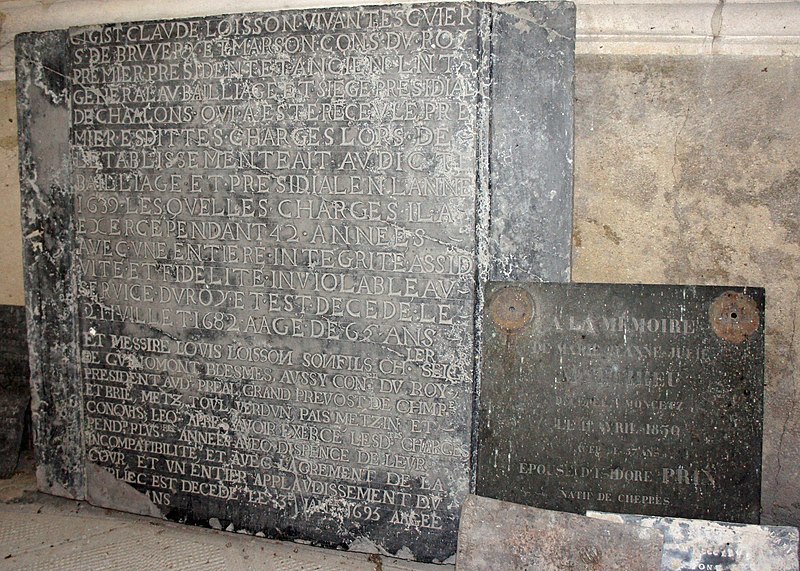 CY GIST CLAVDE LOISSON VIVANT ESCVIER
S DE BRVVERY ET MARSON CONS DV ROY
PREMIER PRESIDENT ET ANCIEN LNT
GENERAL AV BAILLIAGE ET SIEGE PRESIDIAL
DE CHAALONS QVI A ESTE RECEV LE PRE
MIER ESDITTES CHARGES LORS DE
L'ETABLISSEMENT FAIT AVDICT
BAILLIAGE ET PRESIDIAL EN L'ANNE
1639 LESQVELLES CHARGES IL A
EXERCE PENDANT 42 ANNEES
AVEC VNE ENTIERE INTEGRITE ASSID
VITE ET FIDELITE INVIOLABLE AV
SERVICE DV ROY ET EST DECEDE LE
21 IVILLET 1682 AAGE DE 65 ANS
ET MESSIRE LOVIS LOISSON SON FILS CHLER SEIGR
DE GVIGNOMONT BLESMES AUSSY CONR DU ROY
PRESIDENT AUD PREAL GRAND PREVOST DE CHMPE
ET BRIE METZ TOUL VERDUN PAIS METZIN ET
APRES AVOIR EXERCÉ LESD CHARGES
PENDT PLUSRS ANNÉES AVEC DISPENCE DE LEUR
INCOMPATIBILITÉ ET AVEC L'AGREMENT DE LA
COUR ET UN ENTIER APPLAUDISSEMENT DU
PUBLIEC EST DECEDÉ LE JANR 1695 AAGÉE
ANS
A LA MÉMOIRE
DE MARIE JEANNE JULIE
MONCETZ
LE 11 AVRIL 1850
ÉPOUSE D'ISIDORE PRIN
NATIF DE CHEPPES